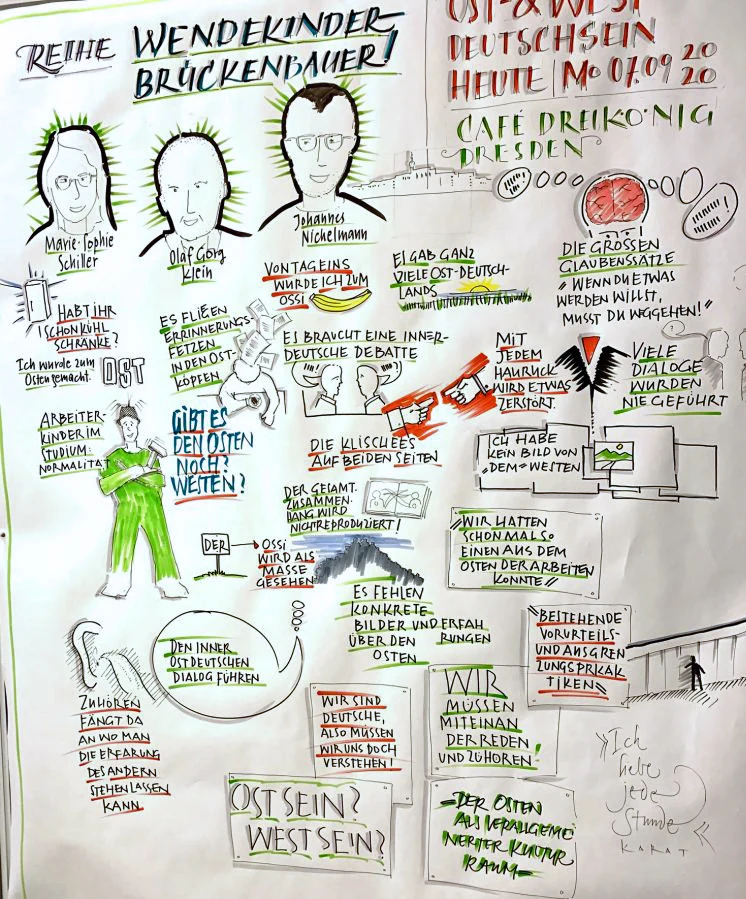 REIHE
WENDEKINDER
BRÜCKENBAUER!
OST- & WEST
DEUTSCHSEIN
HEUTE | MO 07.09 20
20
CAFÉ DREIKÖNIG
DRESDEN
Marie-Sophie
Schiller
Olaf Georg
Klein
Johannes
Nichelmann
HABT IHR
SCHON KÜHL
SCHRÄNKE?
Ich wurde zum
Osten gemacht.
OST
ES FLIEßEN
ERRINNERUNGS-
FETZEN
IN DEN OST-
KÖPFEN
VON TAG EINS
WURDE ICH ZUM
OSSI
ES GAB GANZ
VIELE OST-DEUTSCH-
LANDS
DIE GROSSEN
GLAUBENSSÄTZE
"WENN DU ETWAS
WERDEN WILLST,
MUSST DU WEGGEHEN!"
ES BRAUCHT EINE INNER-
DEUTSCHE DEBATTE
MIT
JEDEM
HAURUCK
WIRD ETWAS
ZERSTÖRT.
VIELE
DIALOGE
WURDEN
NIE GEFÜHRT
ARBEITER-
KINDER IM
STUDIUM:
NORMALITÄT
GIBT ES
DEN OSTEN
NOCH?
WESTEN?
DIE KLISCHEES
AUF BEIDEN SEITEN
ICH HABE
KEIN BILD VON
"DEM" WESTEN
DER GESAMT.
ZUSAMMEN.
HANG WIRD
NICHT REPRODUZIERT!
DER
OSSI
WIRD ALS
MASSE
GESEHEN
"WIR HATTEN
SCHON MAL SO
EINEN AUS DEM
OSTEN DER ARBEITEN
KONNTE"
ES FEHLEN
KONKRETE
BILDER UND ERFAH
RUNGEN
ÜBER DEN
OSTEN
"BESTEHENDE
VORURTEILS-
UND AUSGREN
ZUNGSPRKAK
TIKEN"
DEN INNER
OSTDEUTSCHEN
DIALOG FÜHREN
ZUHÖREN
FÄNGT DA
AN WO MAN
DIE ERFARUNG
DES ANDERN
STEHEN LASSEN
KANN
WIR SIND
DEUTSCHE,
ALSO MÜSSEN
WIR UNS DOCH
VERSTEHEN!
WIR
MÜSSEN
MITEINAN
DER REDEN
UND ZUHÖREN!
"Ich
liebe
jede
Stunde"
KARAT
OST SEIN?
WEST SEIN?
-DER OSTEN
ALS VERALLGEMEI
NERTER KULTUR
RAUM-